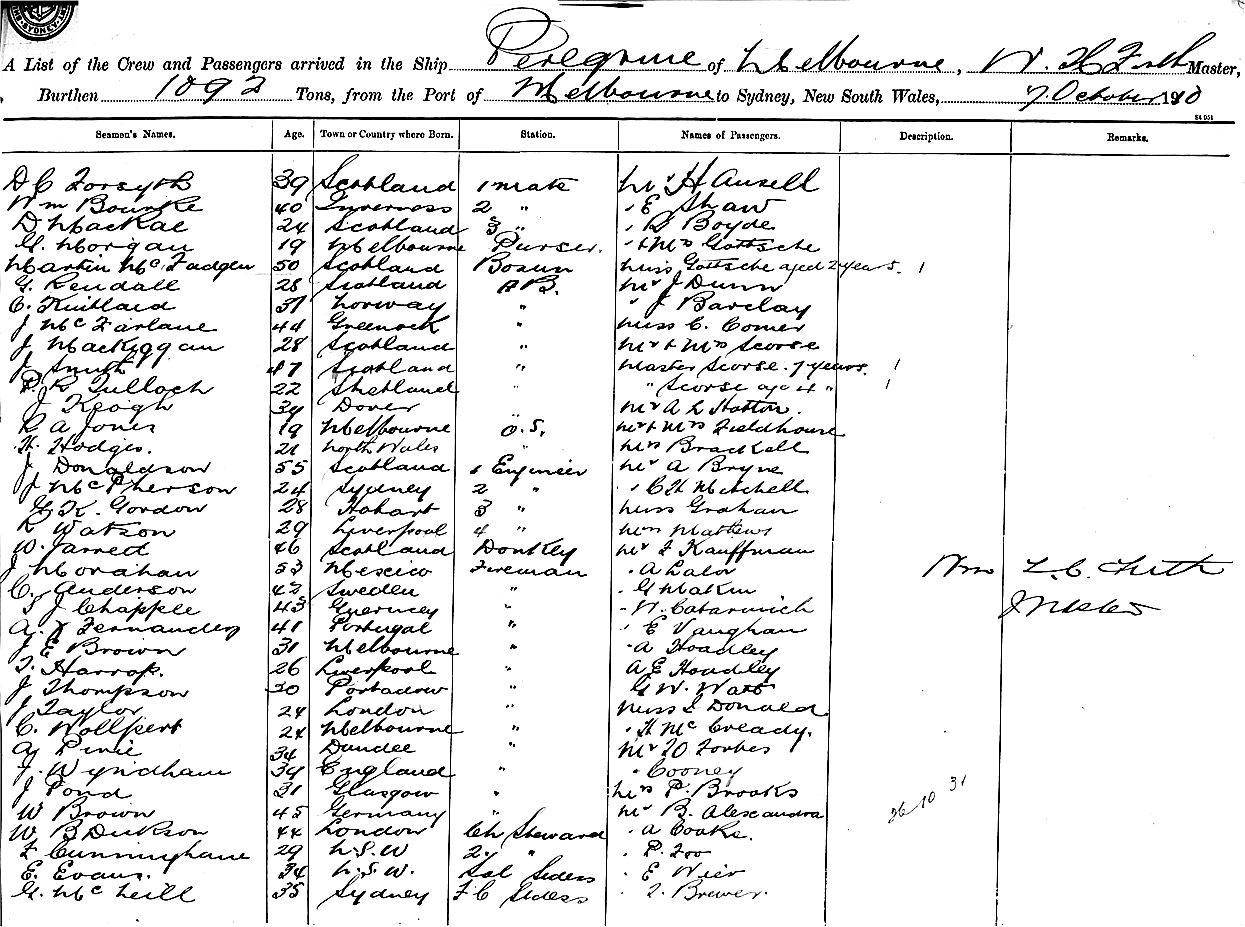 SYDNEY
A List of the Crew and Passengers arrived in the Ship Peregrine of Melbourne, W. H Firth Master,
Burthen 1092 Tons, from the Port of Melbourne to Sydney, New South Wales, 7. October 1910
S4 951
Seamen's Names. Age. Town or Country where Born. Station. Names of Passengers. Description. Remarks.
D C Forsyth 39 Scotland 1 mate Mr H Ansell
Wm Bourke 40 Inverness 2 " " E Shaw
D Mackae 24 Scotland 3 " " Boyde
G. Morgan 19 Melbourne Purser. " & Mrs Gottsche
Martin McFadgen 50 Scotland Bosun Miss Gottsche aged 2 years. 1
G. Kendall 28 Scotland A B. Mr J Dunn
C. 31 Norway " " J Barclay
J McFarlane 44 Greenock " Miss C. Comer
J Mackiggan 28 Scotland " Mr & Mrs Scorse
J Smith 47 Scotland " Master Scorse. 7 years. 1
P. R Tulloch 22 Shetland " " Scorse age 4 " 1
J Keogh 39 Dover " Mr A L Hatton.
R A Jones 19 Melbourne O.S. Mr & Mrs Fieldhouse
H. Hodges. 21 North Wales Mrs Brackell
J Donaldson 55 Scotland 1 Engineer Mr A Bryne
J McPherson 24 Sydney 2 " " C H Mitchell
G. K. Gordon 28 Hobart 3 " Miss Graham
R Watson 29 Liverpool 4 " Mrs Mathews
W. Jarred 46 Scotland Donkey Mr F Kauffman
J Morahan 53 Mexico Fireman " A Lalor Wm
C. Anderson 42 Sweden " " G Makin
S J Chapple 43 Guernsey " " W.
A. Fernandez 41 Portugal " " E Vaughan
J E Brown 31 Melbourne " " A Hoadley
T. Harrop. 26 Liverpool " A E Hoadley
J Thompson 30 Portadown " G W. Watt
J Taylor 24 London " Miss I Donald
C. Wollpert 24 Melbourne " " H McCready.
A Pirie 34 Dundee " Mr Forbes
J. Wyndham 39 England " " Cooney
J Pond 31 Glasgow " Mrs P. Brooks
W Brown 45 Germany " Mr B. Alexandra 26 10 31
W. B Dickson 44 London Ch Steward " A Cooke.
F Cunninghame 29 N.S.W 2. " " P. Foo
E. Evans. 34 N.S.W. Sal " E Wier
G. McNeill 35 Sydney F C " T. Brewer.